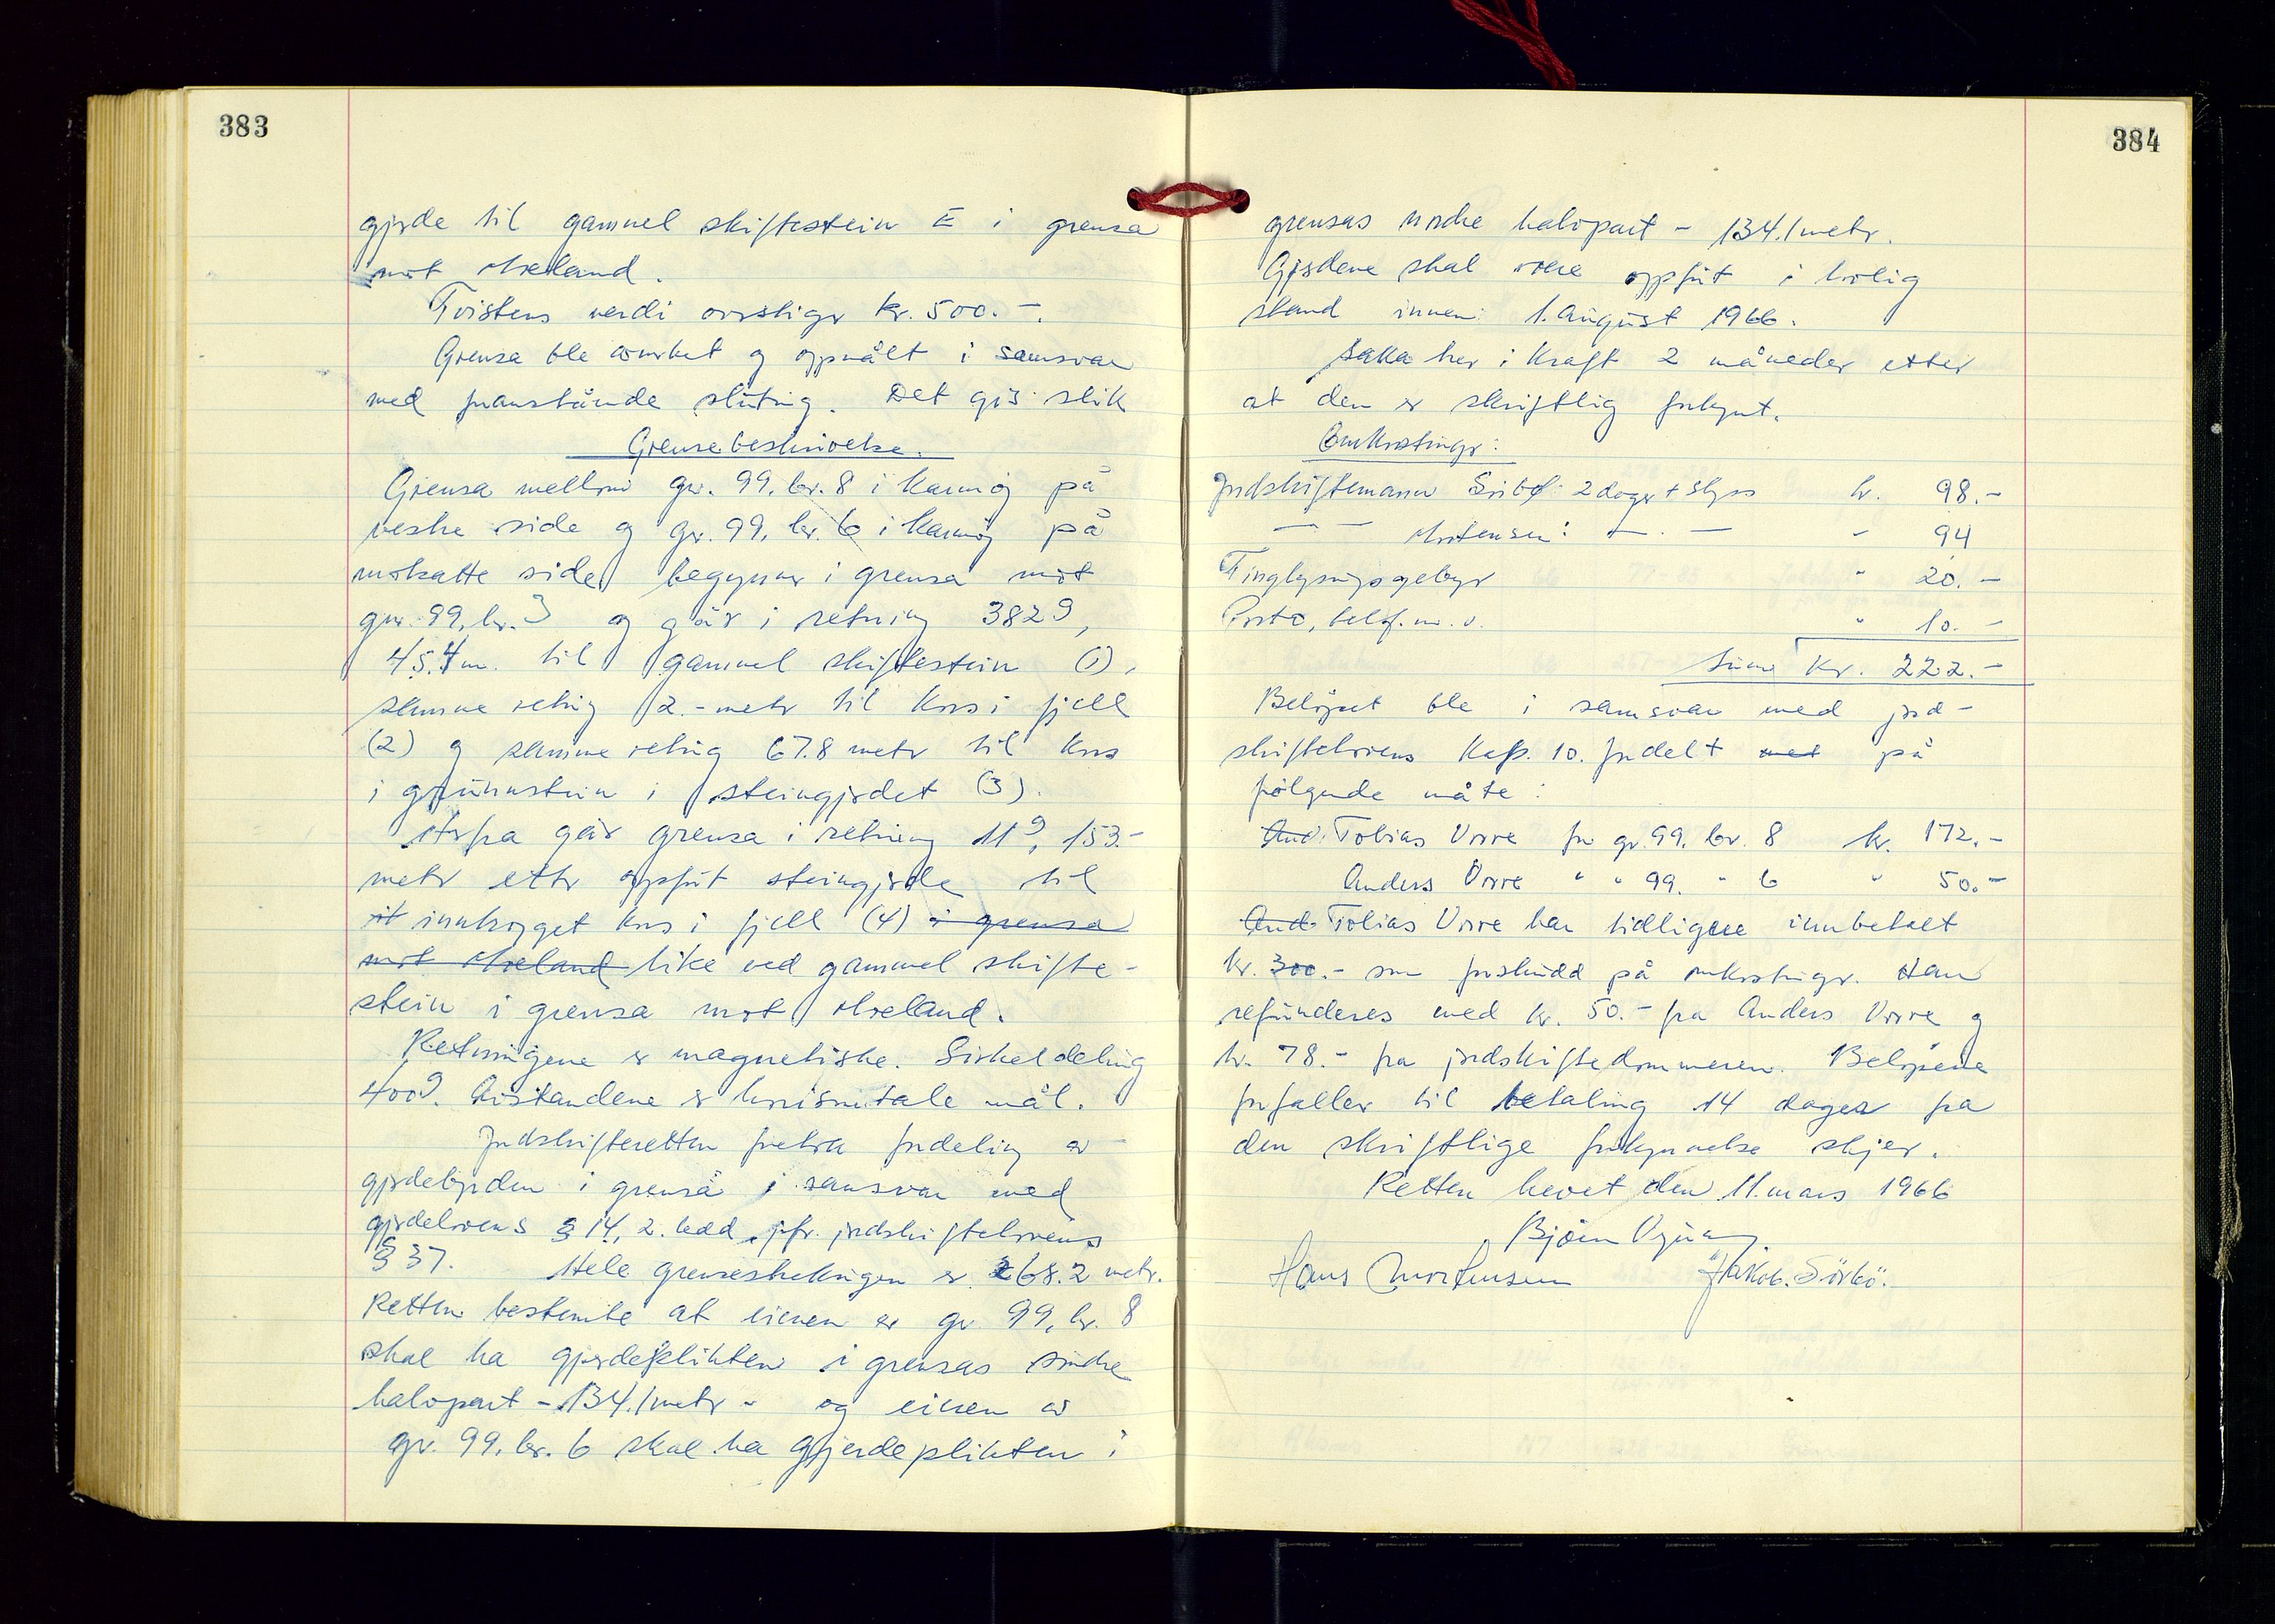 383
gjerde til gammel skiftestein E i grensa
mot Moeland.
Tvistens verdi overstiger kr. 500.-.
Grensa ble avmerket og oppmålt i samsvar
med framstående slutning. Det gis slik
Grensebeskrivelse.
Grensa mellom gnr. 99, bnr. 8 i Karmøy på
vestre side og gnr. 99, bnr. 6 i Karmøy på
motsatte side begynner i grensa mot
gnr. 99, bnr. 3 og går i retning 382g,
45.4 m. til gammel skiftestein (1),
samme retning 2.- meter til kors i fjell
(2) og samme retning 67.8 meter til kors
i grunnstein i steingjerdet (3).
Herfra går grensa i retning 11g, 153.-
meter etter oppført steingjerde til
et innhogget kors i fjell (4) i grensa
mot Moeland like ved gammel skifte-
stein i grensa mot Moeland.
Retningene er magnetiske. Sirkeldeling
400g. Avstandene er horisontale mål.
Jordskifteretten foretok fordeling av
gjerdebyrden i grensa i samsvar med
gjerdelovens § 14, 2. ledd, jfr. jordskiftelovens
§ 37. Hele grensestrekningen er 268.2 meter.
Retten bestemte at eieren av gnr 99, bnr. 8
skal ha gjerdeplikten i grensas søndre
halvpart - 134.1 meter - og eieren av
gnr. 99, bnr. 6 skal ha gjerdeplikten i
384
grensas nordre halvpart - 134.1 meter.
Gjerdene skal være oppført i lovlig
stand innen 1. august 1966.
Saka trer i kraft 2 måneder etter
at den er skriftlig forkynt.
Omkostninger:
Jordskiftemann Sörbö: 2 dager + skyss kr. 98.-
— — Mortensen: — . — - 94
Tinglysningsgebyr " 20.-
Porto, telf. m. v. " 10.-
Sum kr. 222.-
Beløpet ble i samsvar med jord-
skiftelovens kap. 10. fordelt med på
følgende måte:
And. Tobias Vorre for gnr. 99, bnr. 8 kr. 172.-
Anders Vorre " " 99, " 6 " 50.-
And. Tobias Vorre har tidligere innbetalt
kr. 300.- som forskudd på omkostninger. Han
refunderes med kr. 50.- fra Anders Vorre og
kr. 78.- fra jordskiftedommeren. Beløpene
forfaller til betaling 14 dager fra
den skriftlige forkynnelse skjer.
Retten hevet den 11. mars 1966
Bjørn
Hans Mortensen Jakob. Sörbö.